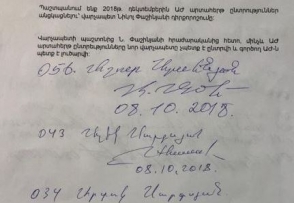 Պաշտպանում ենք 2018թ. դեկտեմբերին ԱԺ արտահերթ ընտրություններ
անցկացնելու՝ վարչապետ Նիկոլ Փաշինյանի դիրքորոշումը:
Վարչապետի պաշտոնից Ն. Փաշինյանի հրաժարականից հետո, մինչև ԱԺ
արտահերթ ընտրությունները նոր վարչապետ չպետք է ընտրվի և գործող ԱԺ-ն
պետք է լուծարվի:
056.
08.10.2018.
043 Սարգսյան
08.10.2018.
034 Սարգսյան